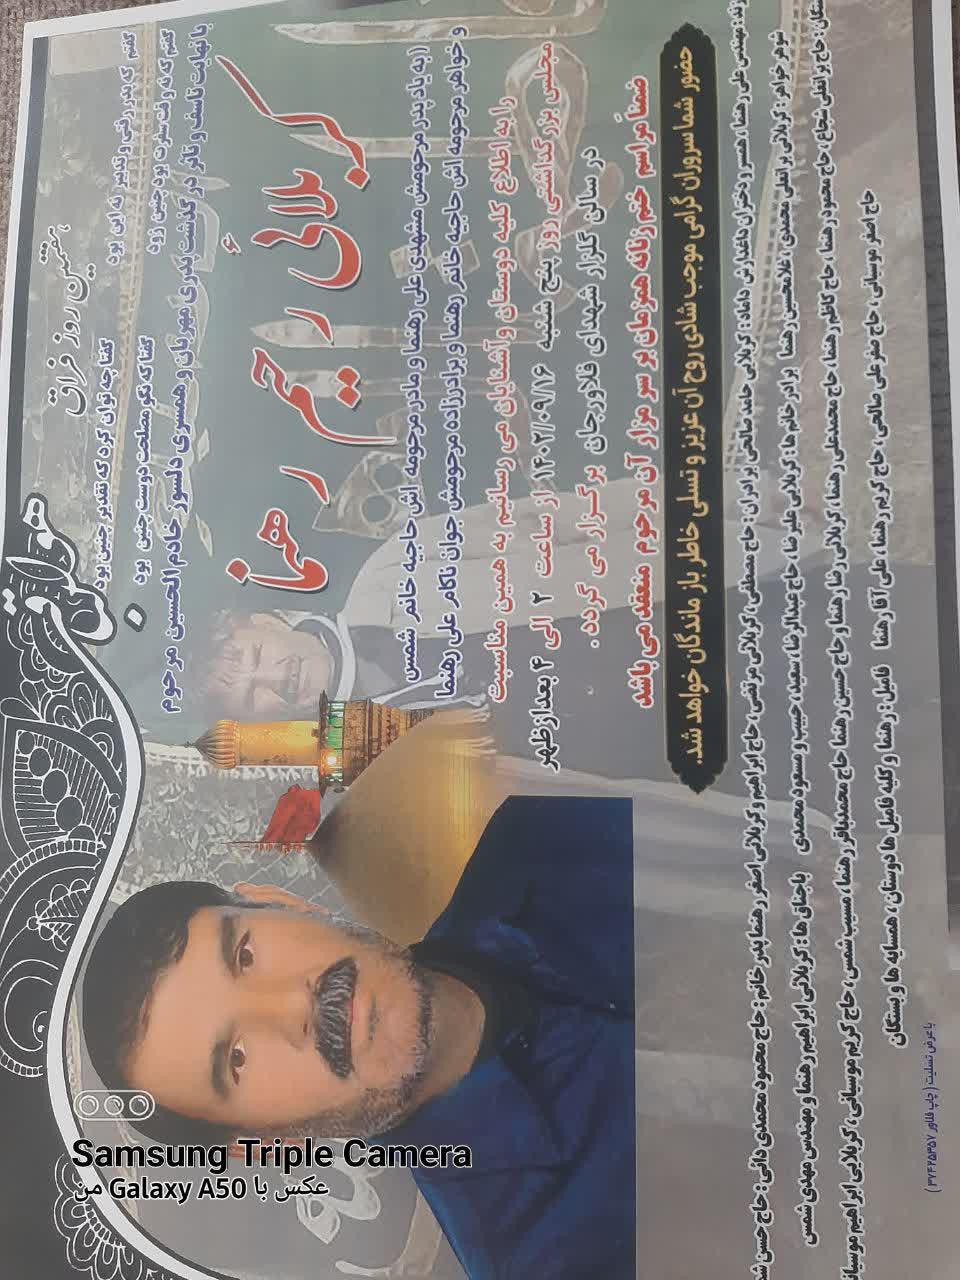 هوالباقی
هفتمین روز فراق
گفتم که پدر رفتی و تدبیر نه این بود
گفتا چه توان کرد که تقدیر چنین بود
گفتم که نه وقت سفرت بود چنین زود
گفتا که نگو مصلحت دوست چنین بود
با نهایت تاسف و تاثر در گذشت پدری مهربان و همسری دلسوز خادم الحسین مرحوم
کربلائی رحیم رهنما
(به یاد پدر مرحومش مشهدی علی رهنما و مادر مرحومه اش حاجیه خانم شمس
و خواهر مرحومه اش حاجیه خانم رهنما و برادرزاده مرحومش جوان ناکام علی رهنما
را به اطلاع کلیه دوستان و آشنایان می رسانیم به همین مناسبت
مجلس بزرگداشتی روز پنج شنبه ۱۴۰۲/۰۹/۱۶ از ساعت ۲ الی ۴ بعدازظهر
در سالن گلزار شهدای فلاورجان برگزار می گردد.
ضمناً مراسم ختم زنانه همزمان بر سر مزار آن مرحوم منعقد می باشد
حضور شما سروران گرامی موجب شادی روح آن عزیز و تسلی خاطر بازماندگان خواهد شد.
مهندس علی رهنما، همسر و دختران داغدارش داماد: کربلائی حامد صالحی برادران: حاج مصطفی، کربلائی مرتضی، حاج ابراهیم و کربلائی اصغر رهنما پدر خانم: حاج محمود محمدی دائی: حاج حسن
شوهر خواهر: کربلائی براتعلی محمدی، غلامحسین رهنما برادر خانم ها: کربلائی علیرضا، حاج عبدالرضا، سعید، حبیب و مسعود محمدی باجناق ها: کربلائی ابراهیم رهنما و مهندس مهدی شمس
حاج براتعلی شجاع، حاج محمود رهنما، حاج کاظم رهنما، حاج محمدعلی رهنما، کربلائی رضا رهنما و حاج حسین رهنما، حاج محمدباقر رهنما، مسیب شمس، حاج کریم موسیانی، کربلایی ابراهیم
حاج اصغر موسیانی، حاج صفرعلی صالحی، حاج کریم رهنما، علی آقا رهنما فامیل: رهنما و کلیه فامیل ها دوستان، همسایه ها و بستگان
با عرض تسلیت (چاپ فلاور ۳۷۴۲۵۳۵۷)
Samsung Triple Camera
عکس با Galaxy A50 من